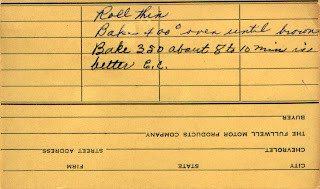 Roll thin
Bake 400° oven until brown
Bake 350 about 8 to 10 min is
better E.C.
BUYER
THE FULLWELL MOTOR PRODUCTS COMPANY
CHEVROLET STREET ADDRESS
CITY STATE FIRM